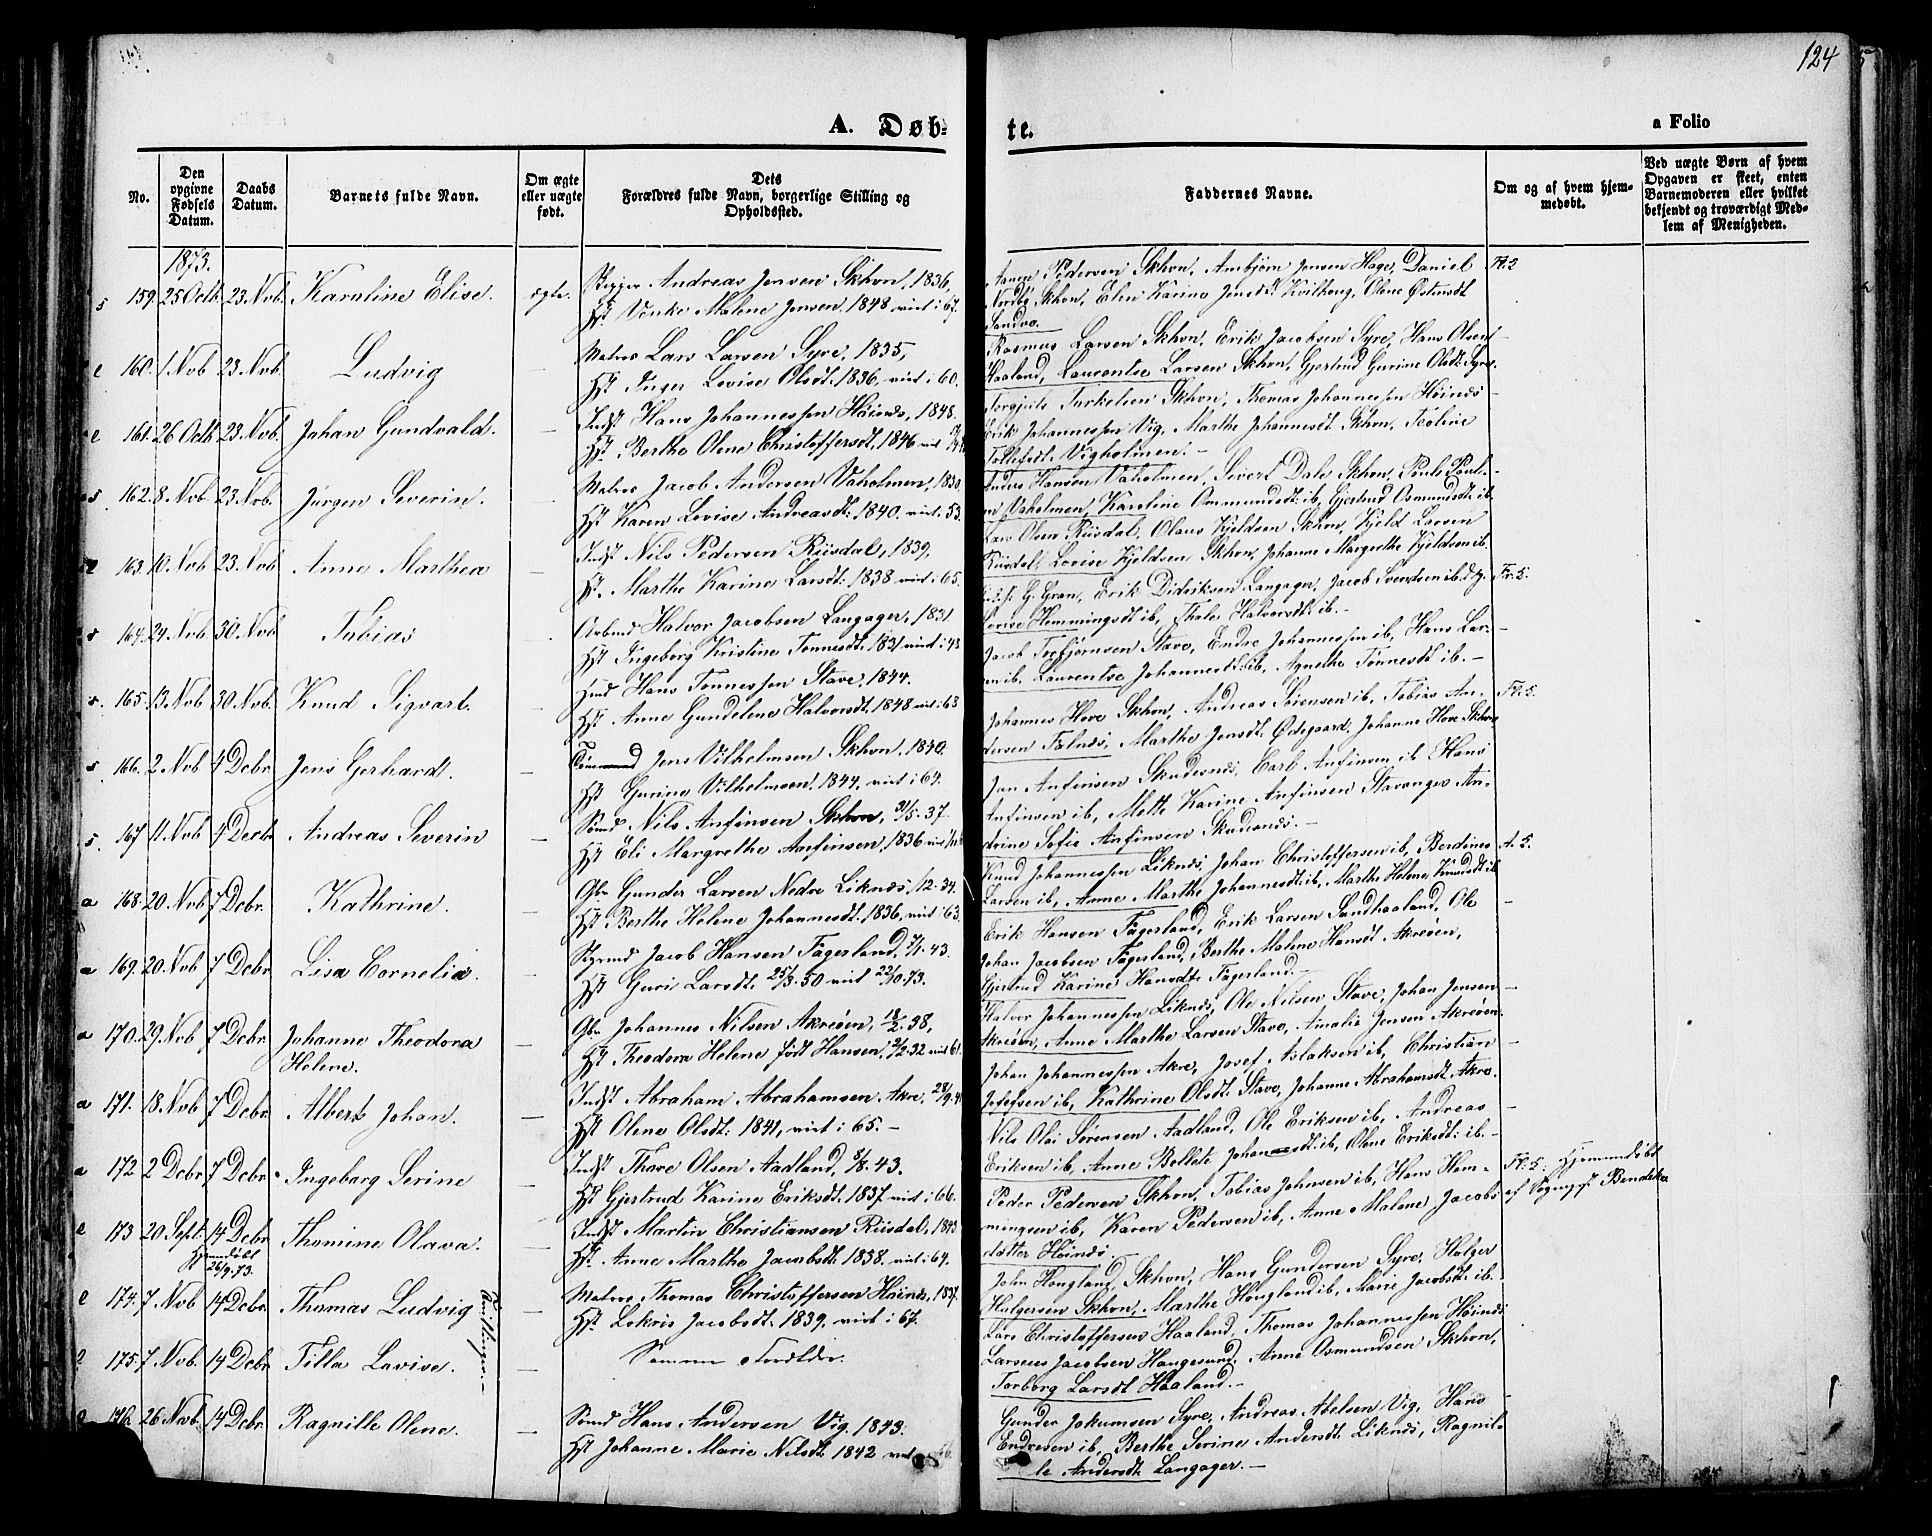 124
A. Døb-
te.
a Folio
No.
Den opgivne Fødsels Datum.
Daabs Datum.
Barnets fulde Navn.
Om ægte eller uægte født.
Dets Forældres fulde Navn, borgerlige Stilling og Opholdssted.
Faddernes Navne.
Om og af hvem hjemmedøbt.
Ved uægte Børn af hvem Opgaven er skeet, enten Barnemoderen eller hvilket bekjendt og troværdigt Medlem af Menigheden.
1873.
159. 25 Octb. 23. Nvb. Karoline Elise. ægte. Andreas Jensen Skhvn, 1836,
Hst. Vinke Malene Jensen, 1848 vird i 67.
Pedersen Skhvn, Ambjørn Jensen Hage, Daniel
Nordbø Skhvn, Elen Karine Jensdt. Kvilhoug, Olene Østensdt
Sandvo.
160. 1. Nvb 23. Nvb. Ludvig — Matros Lars Larsen Syre, 1835,
Hst Inger Lovise Olsdt. 1836, vird i 60.
Rasmus Larsen Skhvn, Erik Jacobsen Syre, Hans Olsen
Haaland, Laurentse Larsen Skhvn, Gjertrud Gurine Olsdt. Syre.
161. 26 Octb. 23. Nvb. Johan Gundvald. — Indst Hans Johannessen Høinæs, 1848.
Hst. Berthe Olene Christoffersdt. 1846
Torgjuls Torkelsen Skhvn, Thomas Johannessen Høinæs
Erik Johannessen Vig, Marthe Johannesdt. Skhvn, Teoline
Tollefsdt. Vigholmen. —
162. 8. Nvb. 23. Nvb. Jørgen Severin. — Matros Jacob Andersen Vaholmen, 1830.
Hst Karen Lovise Andreasdt. 1840. vird i 53.
Hansen Vaholmen, Sivert Dale Skhvn, Pouls Poul-
Vaholmen, Karoline Ommundsdt. ib, Gjertrud Osmundsdt. ib.
163. 10. Nvb 23. Nvb Anne Marthea — Indst Nils Pedersen Riisdal, 1839,
Hst. Marthe Karine Larsdt. 1838 vird i 65.
Lars Olsen Riisdal, Olaus Kjeldsen Skhvn, Kjeld Larsen
Riisdal, Lovise Kjeldsen Skhvn, Johanne Margrethe Kjeldsen ib.
164. 24. Nvb. 30. Nvb Tobias — Halvor Jacobsen Langager, 1831
Hst Ingeborg Kristine Tønnesdt. 1831 vird i 43
G. Grøn, Erik Didriksen Langager, Jacob Svendsen ib.
Lovise Hemmingsdt ib, Thale Halvorsdt. ib. —
165. 13. Nvb 30. Nvb. Knud Sigvart. — Hans Tønnessen Stave, 1844.
Hst Anne Gundelene Halvorsdt. 1848 vird i 63
Jacob Torbjørnsen Stave, Endre Johannessen ib, Hans Lar-
sen ib. Laurentse Johannesdt. ib, Agnethe Tønnesdt ib. —
166. 2 Nvb 4 Dcbr Jens Gerhardt. — Jens Vilhelmsen Skhvn, 1840.
Hst Gurine Vilhelmsen, 1844, vird i 64.
Johannes Hove Skhvn, Andreas Sørensen ib, Tobias An-
dersen Falnæs, Marthe Jensdt. Ødegaard, Johanne Hove Skhvn
167 11. Nvb 4 Decbr Andreas Severin — Sømd Nils Anfinsen Skhvn, 31/5. 37.
Hst Eli Margrethe Anfinsen, 1836
Jan Anfinsen Skudesnæs, Carl Anfinsen ib Hans
Anfinsen ib, Mette Karine Anfinsen Stavanger An-
drine Sofie Anfinsen Skudesnæs. —
168. 20. Nvb 7 Dcbr. Kathrine. — Gbr Gunder Larsen Nedre Liknæs, 12. 34.
Hst Berthe Helene Johannesdt. 1836, vird i 63.
Knud Johannessen Liknæs, Johan Christoffersen ib, Berdines
Larsen ib, Anne Marthe Johannesdt. ib, Marthe Helene Knudsdt ib
169. 20. Nvb 7 Dcbr. Lisa Cornelia. — Jacob Hansen Fagerland, 7/1. 43.
Hst Guri Larsdt. 25/3. 50 vird 22/10. 73.
Erik Hansen Fagerland, Erik Larsen Sandhaaland, Ole
Johan Jacobsen Fagerland, Berthe Malene Hansdt Akreøen,
Gjertrud Karine Hansdtr Fagerland. —
170. 29. Nvb 7 Dcbr Johanne Theodora Helene. — Gbr Johannes Nilsen Akreøen, 18/2. 38,
Hst Theodora Helene født Hansen,
Halvor Johannessen Liknæs, Ole Nilsen Stave, Johan Jensen
Akreøen, Anne Marthe Larsen Stave, Amalie Jensen Akreøen.
171. 18. Nvb 7 Dcbr. Albert Johan. — Indst Abraham Abrahamsen Akre,
Hst Olene Olsdt. 1841, vird i 65. —
Johan Johannessen Akre, Josef Aslaksen ib, Christian
Josefsen ib, Kathrine Olsdt. Stave, Johanne Abrahamsdt Akre.
172. 2 Dcbr 7 Dcbr. Ingeborg Serine — Indst Thore Olsen Aadland, 5/8. 43.
Hst Gjertrud Karine Eriksdt. 1837 vird i 66.
Nils Olai Sørensen Aadland, Ole Eriksen ib, Andreas
Eriksen ib, Anne Bollete Johannesdt. ib, Olene Eriksdt: ib. —
173 20 Sept. 14 Dcbr Hjemdøbt 26/9. 73. Thomine Olava. — Indst Martin Christiansen Riisdal, 1843
Hst. Anne Marthe Jacobsdt. 1838. vird i 64.
Peder Pedersen Skhvn, Tobias Johnsen ib, Hans Hem-
mingsen ib, Karen Pedersen ib, Anne Malene Jacobs-
datter Høinæs.
Hjemmedøbt
af Sognepr. Bendeke
174. 7. Nvb 14 Dcbr. Thomas Ludvig — Matros Thomas Christoffersen Høinæs, 1837.
Hst. Lokris Jacobsdt. 1839, vird i 67.
John Hougland, Skhvn, Hans Gundersen Syre, Holger
Holgersen Skhvn, Marthe Hougland ib, Marie Jacobsdt. ib. —
Tvillinger. —
175. 7. Nvb. 14 Dcbr Tilla Lovise. — Samme Forældre.
Lars Christoffersen Haaland, Thomas Johannessen Høinæs
Larseus Jacobsen Haugesund, Anne Osmundsen Skhvn,
Torborg Larsdt Haaland. —
176 26 Nvb. 14 Dcbr Ragnille Olene. — Sømd Hans Andersen Vig, 1843.
Hst Johanne Marie Nilsdt 1842
Gunder Jokumsen Syre, Andreas Abelsen Vig, Hans
Endresen ib, Berthe Serine Andersdt. Liknæs, Ragnil-
le Andersdt Langager. —